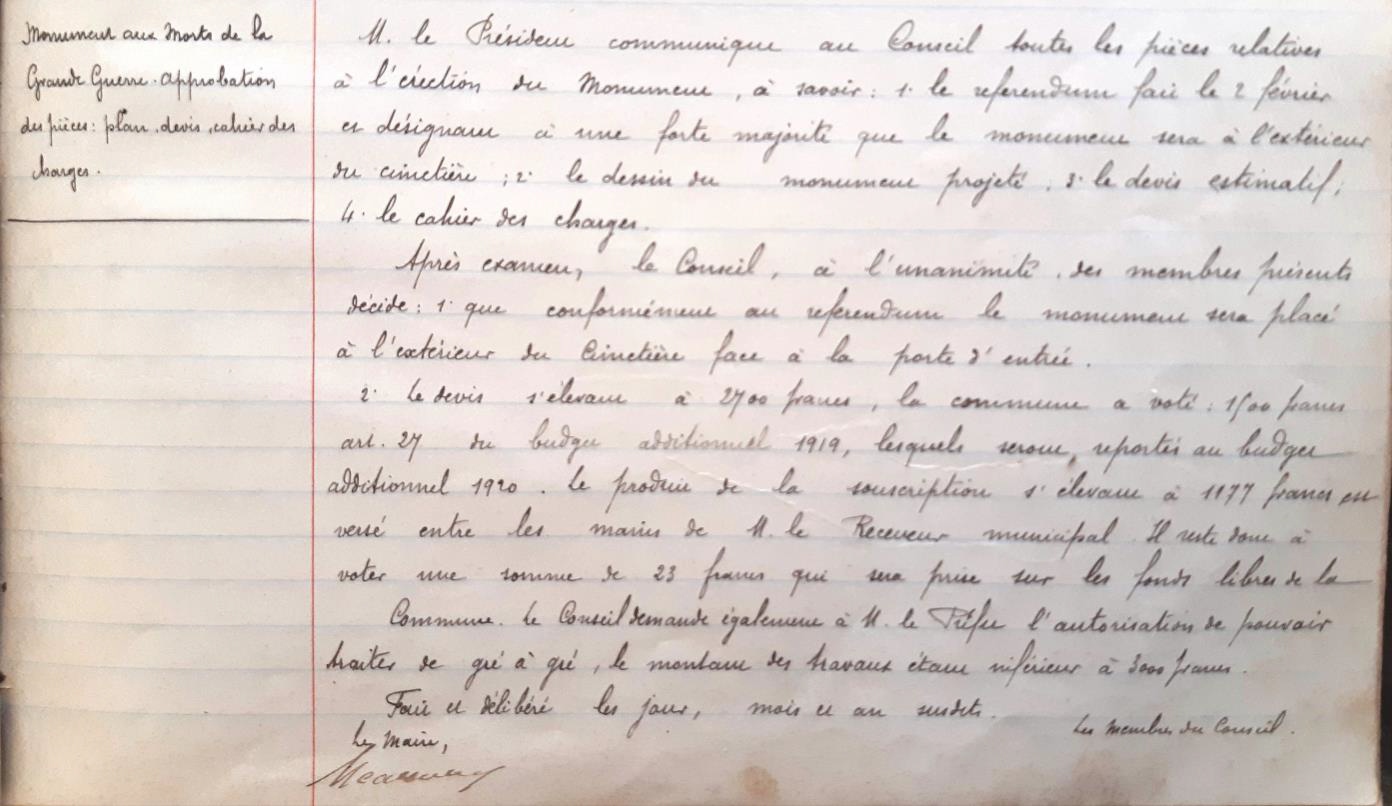 Monument aux Morts de la
Grande Guerre. Approbation
des pièces: plan, devis, cahier des
charges.
M. le Président communique au Conseil toutes les pièces relatives
à l'érection du Monument, à savoir: 1. le referendum fait le 2 février
et désignant à une forte majorité que le monument sera à l'extérieur
du cimetière; 2. le dessin du monument projeté; 3. le devis estimatif;
4. le cahier des charges.
Après examen, le Conseil, à l'unanimité des membres présents
décide: 1. que conformément au referendum le monument sera placé
à l'extérieur du Cimetière face à la porte d'entrée.
2. Le devis s'élevant à 2700 francs, la commune a voté: 1500 francs
art. 27 du budget additionnel 1919, lesquels seront reportés au budget
additionnel 1920. Le produit de la souscription s'élevant à 1177 francs est
versé entre les mains de M. le Receveur municipal. Il reste donc à
voter une somme de 23 francs qui sera prise sur les fonds libres de la
Commune. Le Conseil demande également à M. le Préfet l'autorisation de pouvoir
traiter de gré à gré, le montant des travaux étant inférieur à 3000 francs.
Fait et délibéré les jour, mois et an susdits.
Les Membres du Conseil.
Le Maire,